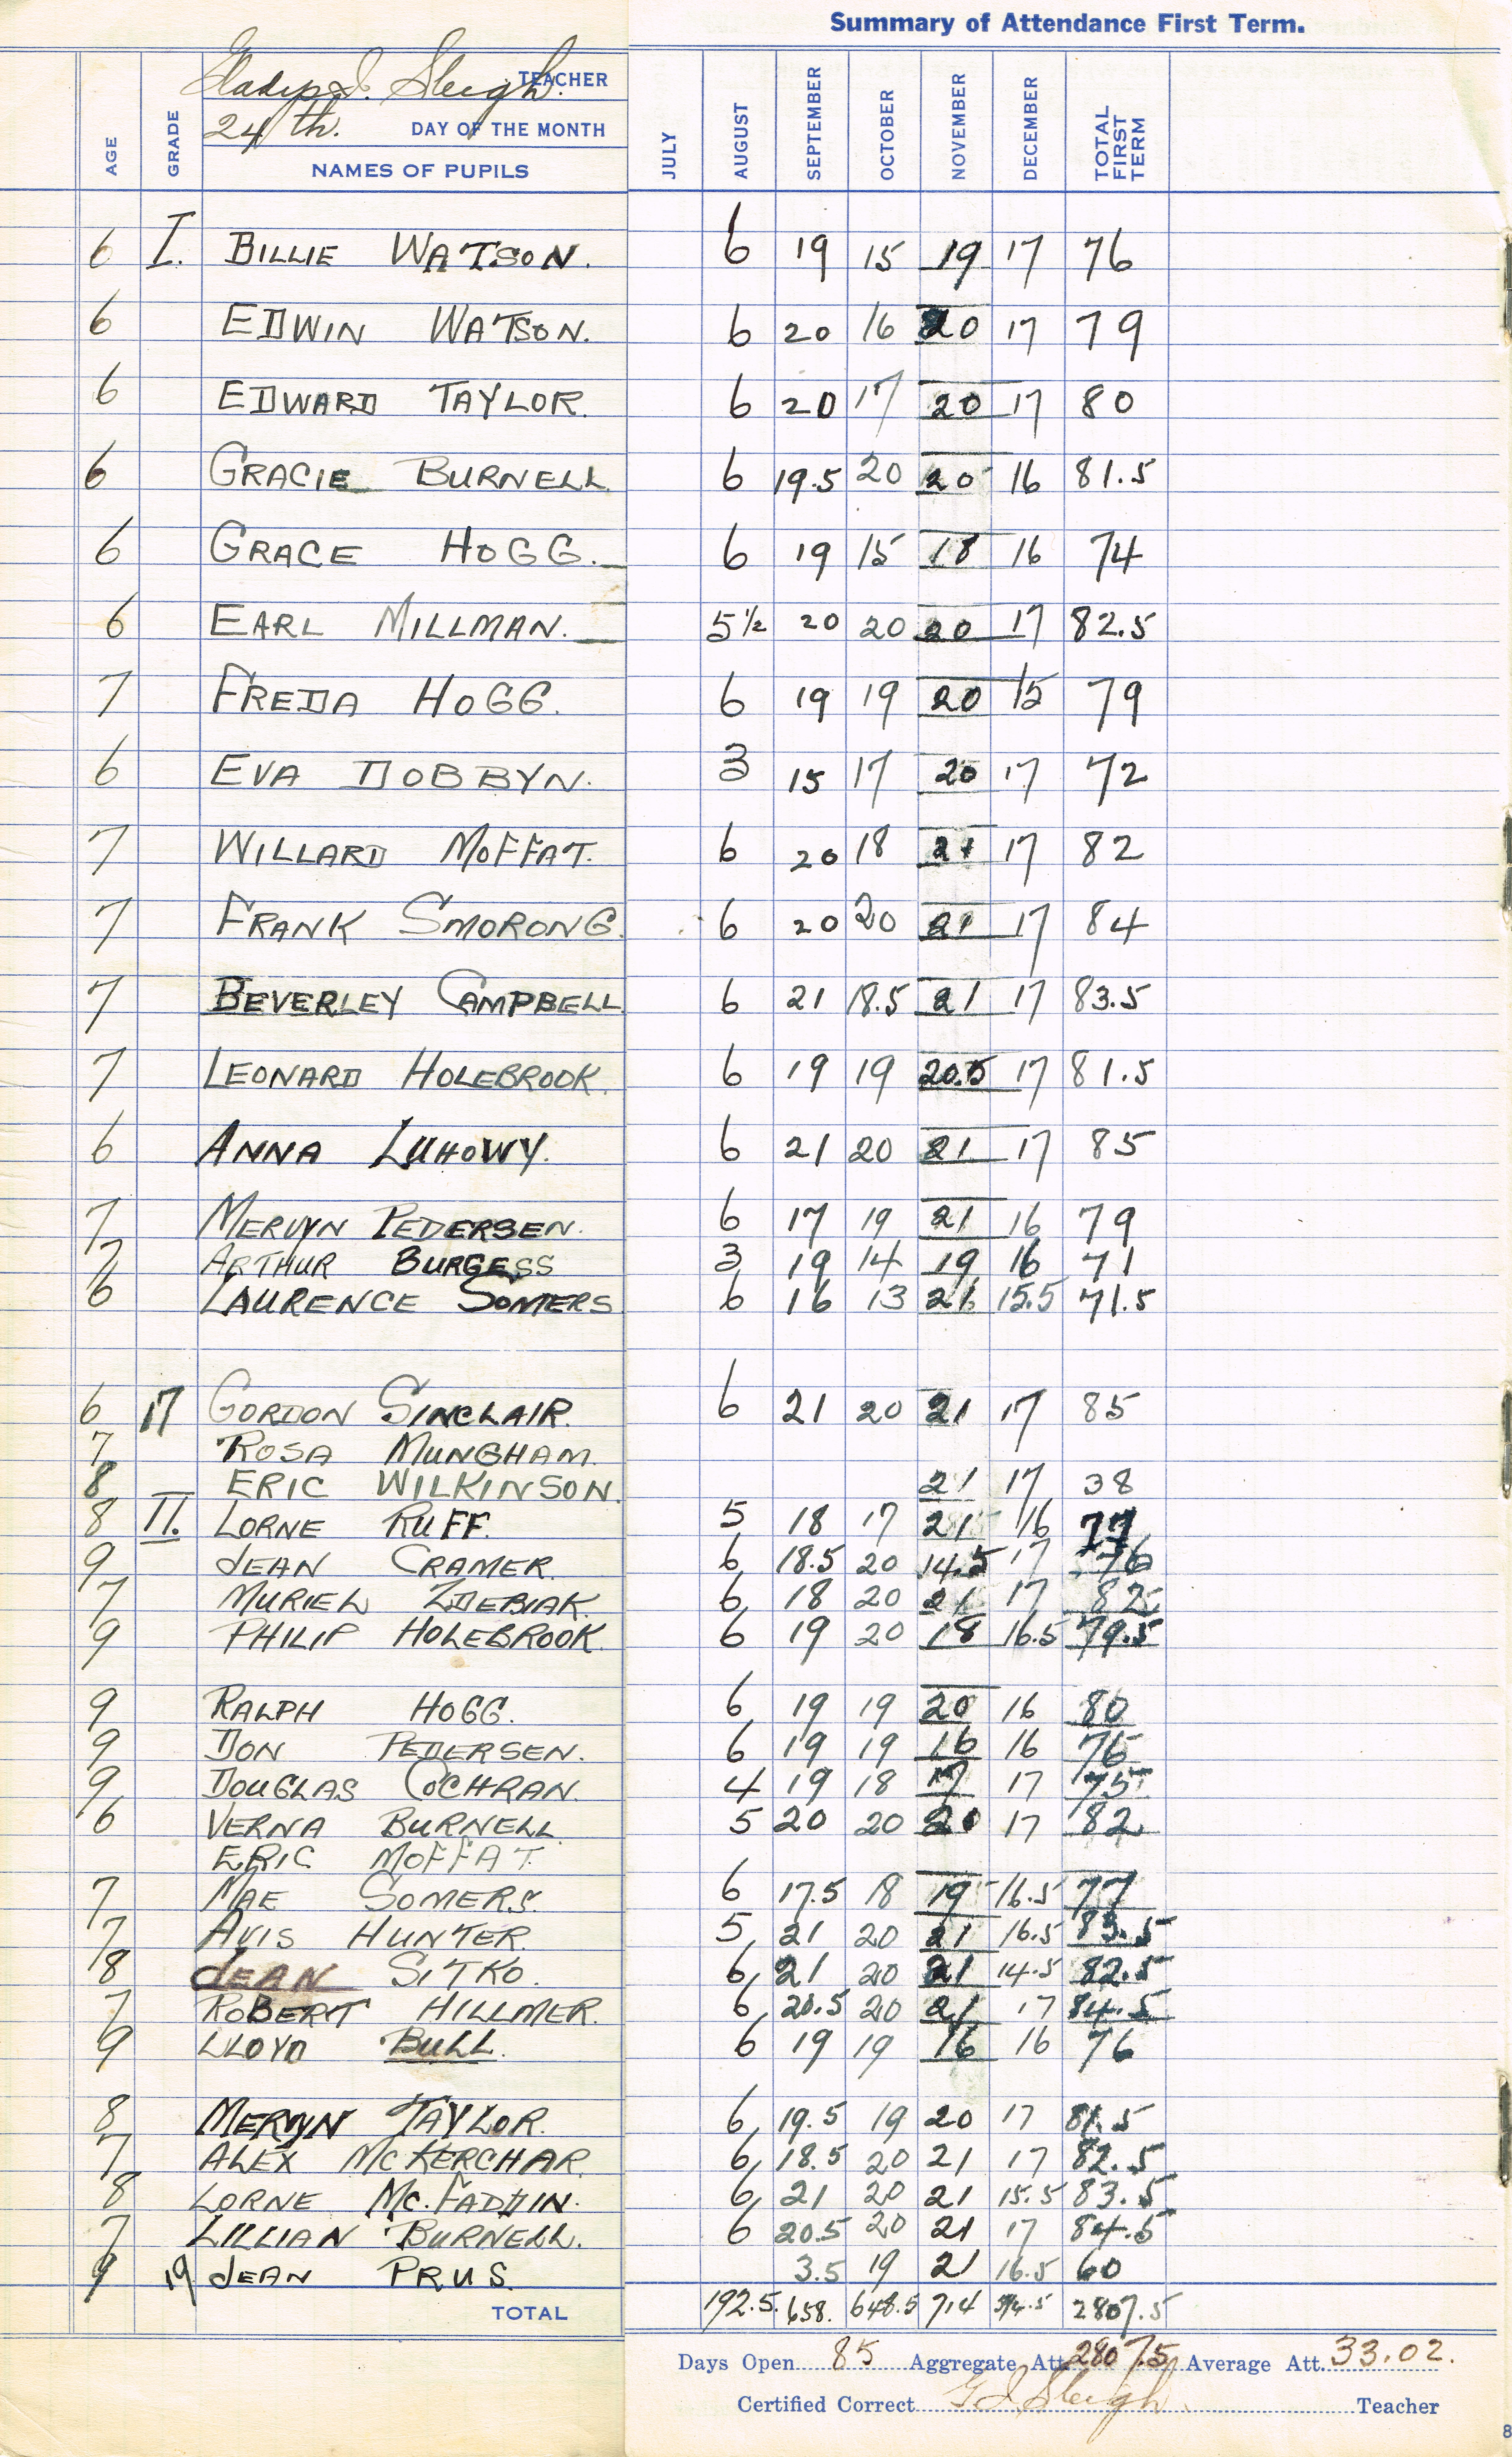 Summary of Attendance First Term.
Gladys I. Sleigh. TEACHER
24th. DAY OF THE MONTH
AGE GRADE NAMES OF PUPILS JULY AUGUST SEPTEMBER OCTOBER NOVEMBER DECEMBER TOTAL FIRST TERM
6 I. BILLIE WATSON. 6 19 15 19 17 76
6 EDWIN WATSON. 6 20 16 20 17 79
6 EDWARD TAYLOR. 6 20 17 20 17 80
6 GRACIE BURNELL 6 19.5 20 20 16 81.5
6 GRACE HOGG. 6 19 15 18 16 74
6 EARL MILLMAN. 5½ 20 20 20 17 82.5
7 FREDA HOGG. 6 19 19 20 15 79
6 EVA DOBBYN. 3 15 17 20 17 72
7 WILLARD MOFFAT. 6 20 18 21 17 82
7 FRANK SMORONG. 6 20 20 21 17 84
7 BEVERLEY CAMPBELL 6 21 18.5 21 17 83.5
7 LEONARD HOLEBROOK. 6 19 19 20.5 17 81.5
6 ANNA LUHOWY. 6 21 20 21 17 85
7 MERVYN PEDERSEN. 6 17 19 21 16 79
7 ARTHUR BURGESS 3 19 14 19 16 71
6 LAURENCE SOMERS 6 16 13 21 15.5 71.5
6 17 GORDON SINCLAIR. 6 21 20 21 17 85
7 ROSA MUNGHAM.
8 ERIC WILKINSON. 21 17 38
8 II. LORNE RUFF. 5 18 17 21 16 77
9 JEAN CRAMER. 6 18.5 20 14.5 17 76
7 MURIEL ZDEBIAK. 6 18 20 21 17 82
9 PHILIP HOLEBROOK. 6 19 20 18 16.5 79.5
9 RALPH HOGG. 6 19 19 20 16 80
9 DON PEDERSEN. 6 19 19 16 16 76
9 DOUGLAS COCHRAN. 4 19 18 17 17 75
6 VERNA BURNELL 5 20 20 20 17 82
ERIC MOFFAT.
7 MAE SOMERS. 6 17.5 18 19 16.5 77
7 AVIS HUNTER. 5 21 20 21 16.5 83.5
8 JEAN SITKO. 6 21 20 21 14.5 82.5
7 ROBERT HILLMER. 6 20.5 20 21 17 84.5
9 LLOYD BULL. 6 19 19 16 16 76
8 MERVYN TAYLOR. 6 19.5 19 20 17 81.5
7 ALEX MCKERCHAR. 6 18.5 20 21 17 82.5
8 LORNE MC.FADDIN. 6 21 20 21 15.5 83.5
7 LILLIAN BURNELL. 6 20.5 20 21 17 84.5
9 19 JEAN PRUS. 3.5 19 21 16.5 60
TOTAL 192.5. 658. 648.5 714 2807.5
Days Open 85 Aggregate Att. 2807.5 Average Att. 33.02.
Certified Correct G I Sleigh. Teacher
8